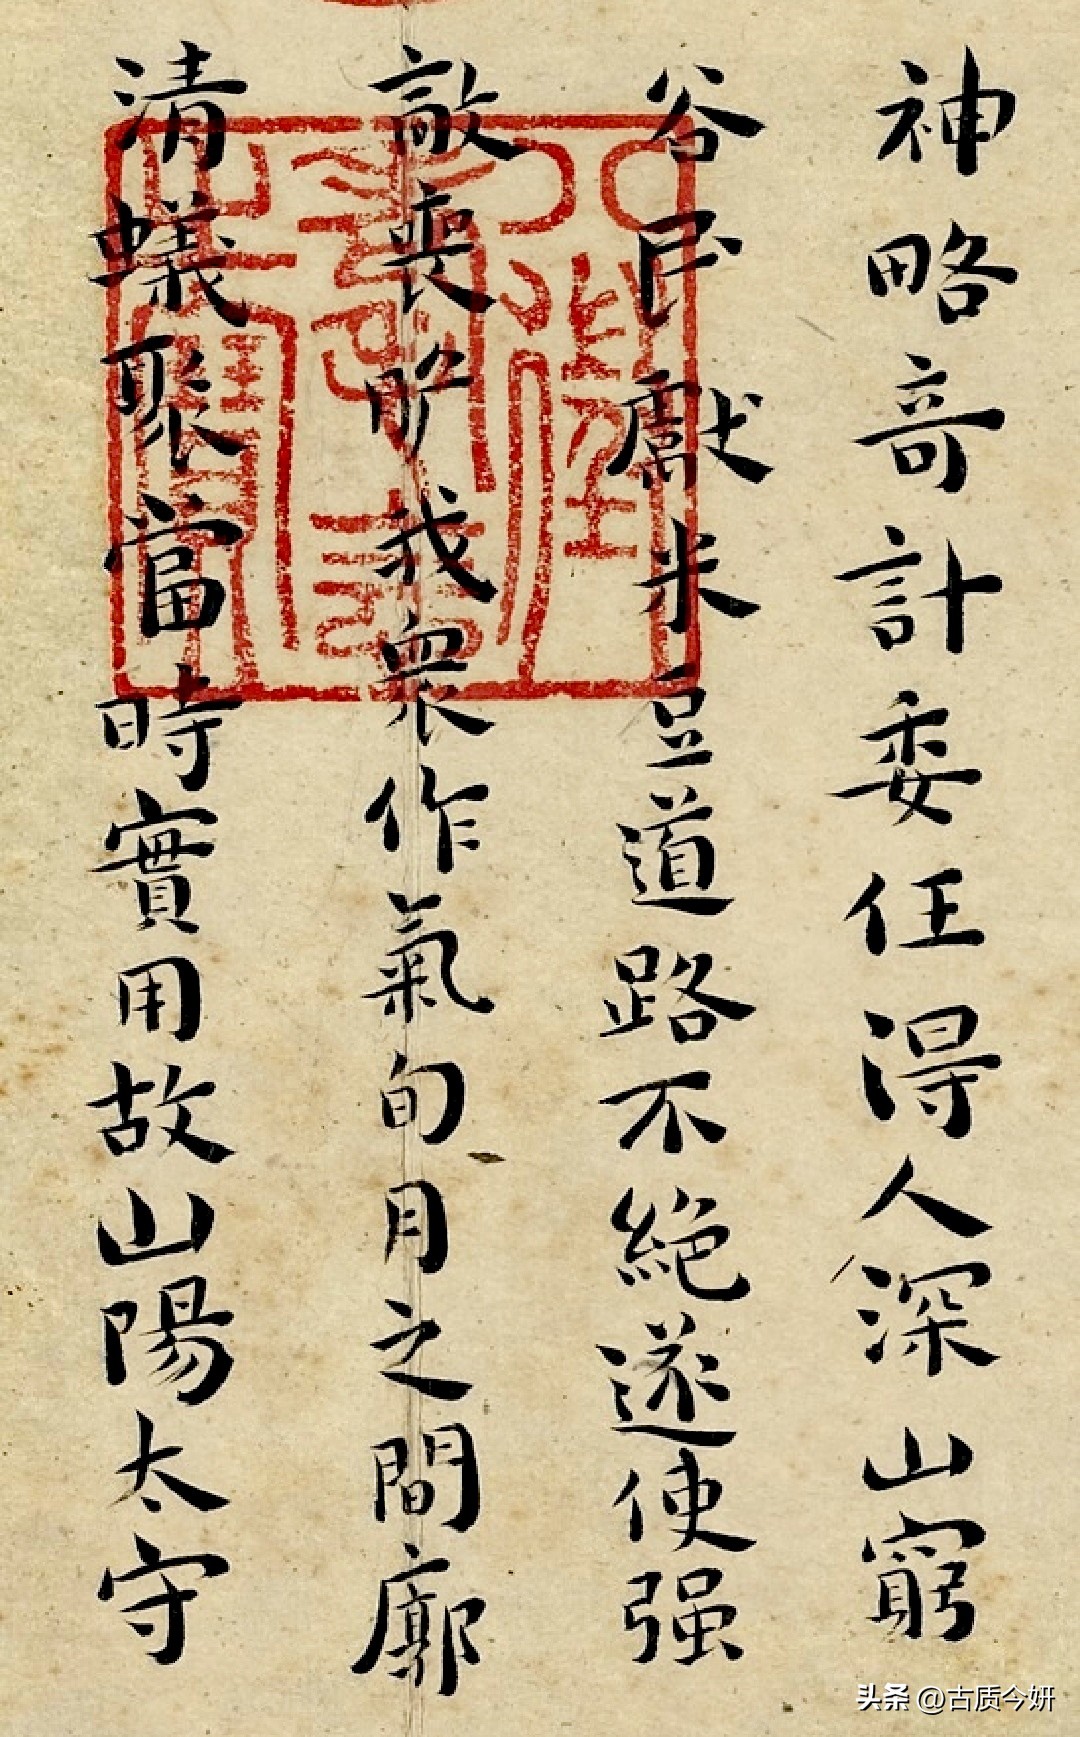 神略奇計委任得人深山窮
谷民獻米豆道路不絕遂使强
敵喪膽我衆作氣旬月之間廓
清蟻聚當時實用故山陽太守
头条 @古质今妍